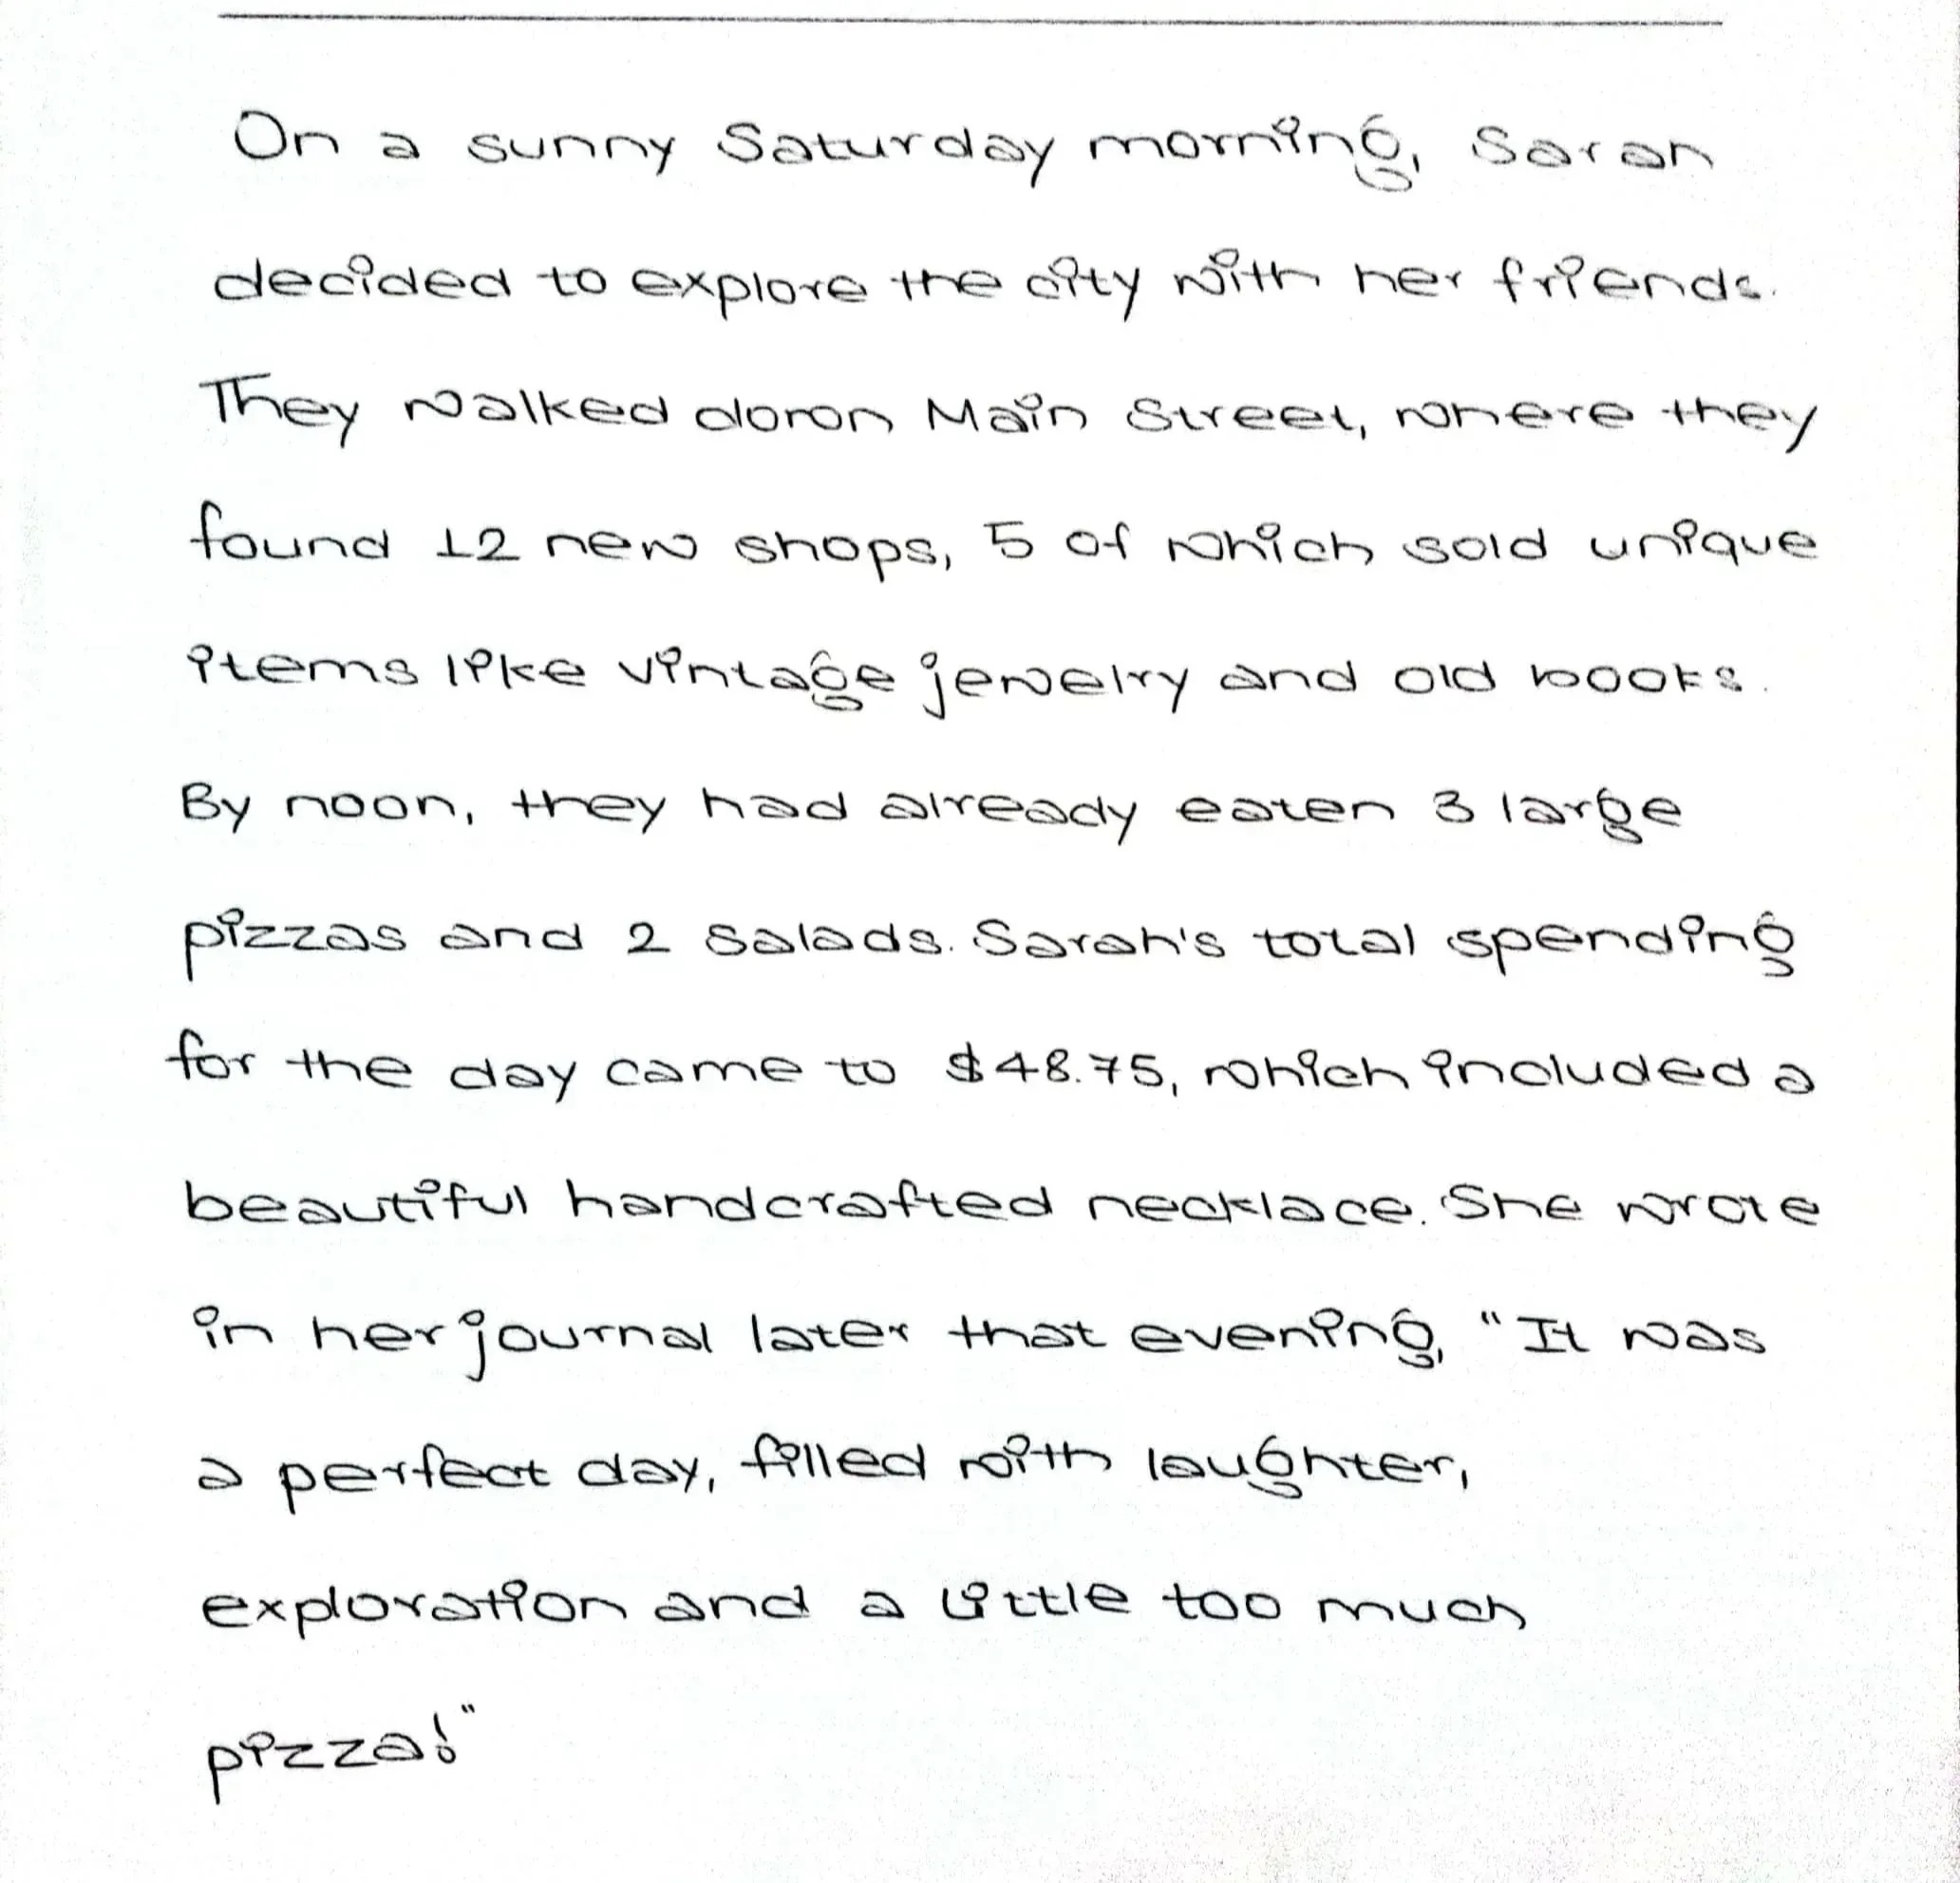 On a sunny Saturday morning, Sarah
decided to explore the city with her friends.
They walked down Main Street, where they
found 12 new shops, 5 of which sold unique
items like vintage jewelry and old books.
By noon, they had already eaten 3 large
pizzas and 2 salads. Sarah's total spending
for the day came to $48.75, which included a
beautiful handcrafted necklace. She wrote
in her journal later that evening, "It was
a perfect day, filled with laughter,
exploration and a little too much
pizza!"